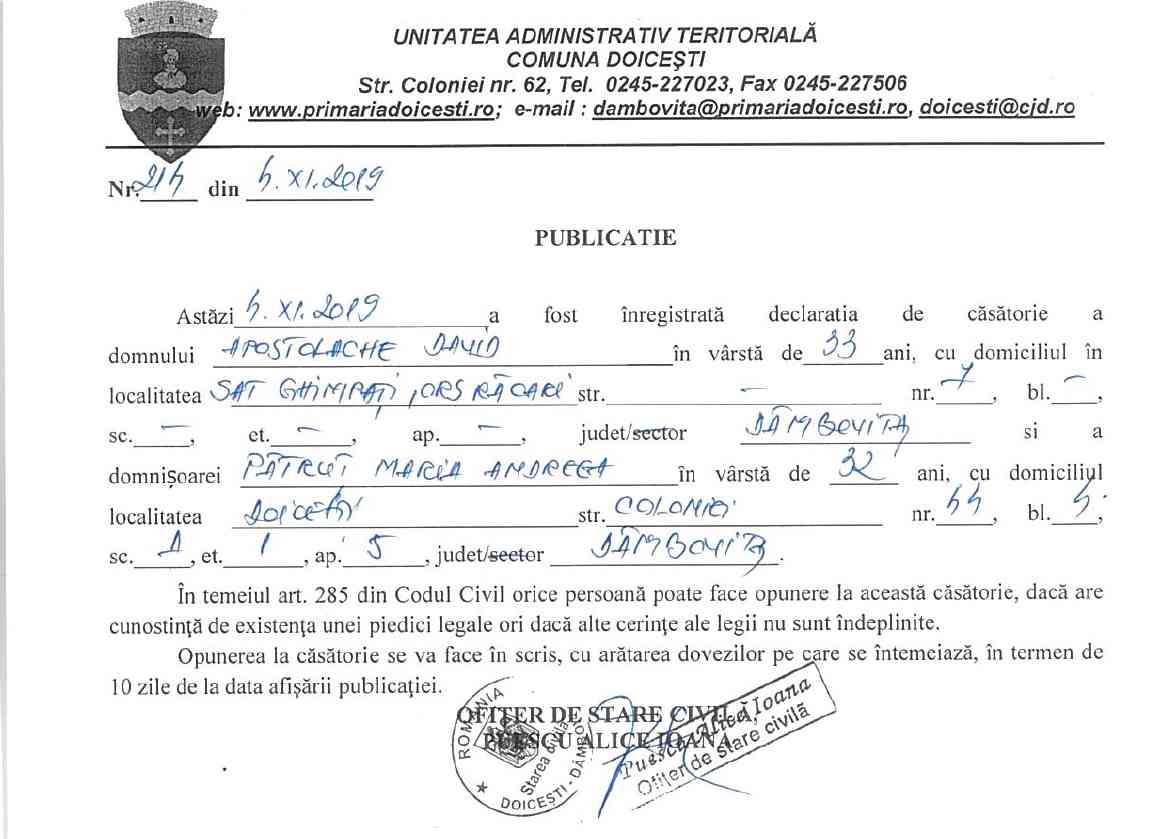 UNITATEA ADMINISTRATIV TERITORIALĂ
COMUNA DOICEŞTI
Str. Coloniei nr. 62, Tel. 0245-227023, Fax 0245-227506
web: www.primariadoicesti.ro; e-mail : dambovita@primariadoicesti.ro, doicesti@cjd.ro
Nr. 214 din 4.XI.2019
PUBLICATIE
Astăzi 4.XI.2019 a fost înregistrată declaratia de căsătorie a
domnului APOSTOLACHE DAVID în vârstă de 33 ani, cu domiciliul în
localitatea SAT GHIMPAȚI, ORȘ RĂCARI str. — nr. 7, bl. —,
sc. —, et. —, ap. —, judet/sector DÂMBOVIȚA si a
domnișoarei PĂTRUȚ MARIA ANDREEA în vârstă de 32 ani, cu domiciliul
localitatea DOICEȘTI str. COLONIEI nr. 44, bl. 4,
sc. A, et. 1, ap. 5, judet/sector DÂMBOVIȚA.
În temeiul art. 285 din Codul Civil orice persoană poate face opunere la această căsătorie, dacă are
cunostinţă de existenţa unei piedici legale ori dacă alte cerinţe ale legii nu sunt îndeplinite.
Opunerea la căsătorie se va face în scris, cu arătarea dovezilor pe care se întemeiază, în termen de
10 zile de la data afişării publicaţiei.
OFIŢER DE STARE CIVILĂ,
PUESCU ALICE IOANA
ROMÂNIA
Starea civilă
DOICEŞTI - DÂMBOVIŢA
Puescu Alice Ioana
Ofiţer de stare civilă